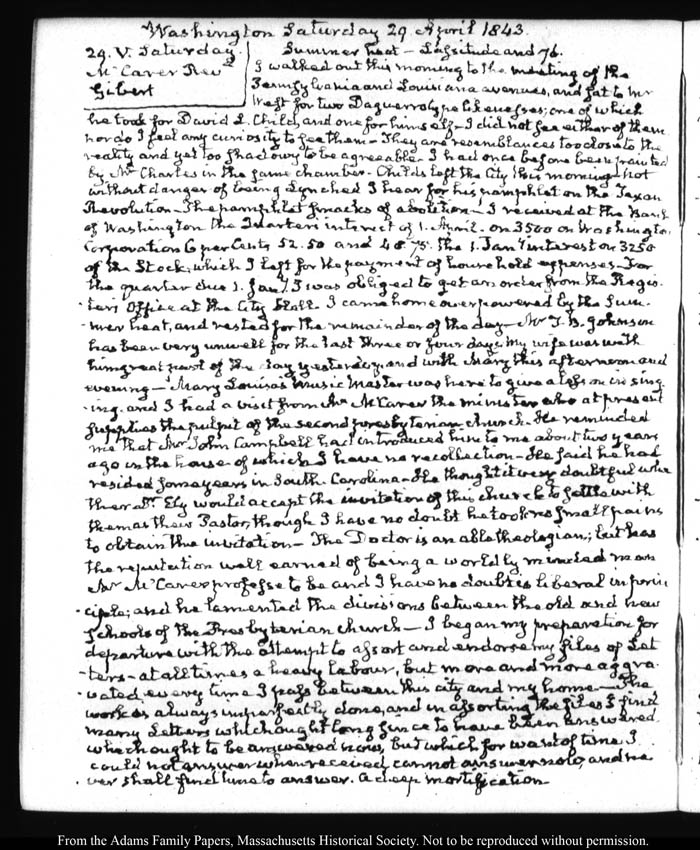 Washington Saturday 29 April 1843.
29. V. Saturday.
McCarer Revd
Gilbert
Summer heat — Lassitude and 76.
I walked out this morning to the meeting of the
Pennsylvania and Louisiana avenues, and sat to Mr
West for two Daguerrotype likenesses; one of which
he took for David L. Child, and one for himself — I did not see either of them
nor do I feel any curiosity to see them — They are resemblances too close to the
reality and yet too shadowy to be agreeable. I had once before been painted
by Mr Charles in the same chamber — Childs left the City this morning, not
without danger of being Lynched I hear for his pamphlet on the Texan
Revolution — The pamphlet smacks of abolition — I received at the Bank
of Washington the Quarters interest of 1. April. on 3500 on Washington
Corporation 6 per Cents 52.50 and 48.75. the 1. Jany interest on 3250
of the Stock, which I left for the payment of household expenses — For
the quarter due 1. Jany I was obliged to get an order from the Regis-
-ters Office at the City Hall. I came home overpowered by the Sum-
-mer heat, and rested for the remainder of the day — Mr T. B. Johnson
has been very unwell for the last three or four days; my wife was with
him great part of the day yesterday, and with Mary this afternoon and
evening — Mary Louisa's music master was here to give a lesson in sing-
-ing. and I had a visit from Mr McCarer the minister who at present
supplies the pulpit of the second presbyterian church. He reminded
me that Mr John Campbell had introduced him to me about two years
ago in the house of which I have no recollection — He said he had
resided some years in South Carolina — He thought it very doubtful whe
ther Dr Ely would accept the invitation of this church to settle with
them as their Pastor, though I have no doubt he took no small pains
to obtain the invitation — The Doctor is an able theologian; but has
the reputation well earned of being a worldly minded man
Mr McCarer professes to be and I have no doubt is liberal in prin
-ciple; and he lamented the divisions between the old and new
schools of the Presbyterian church — I began my preparation for
departure with the attempt to assort and endorse my files of Let
-ters — at all times a heavy labour, but more and more aggra-
-vated every time I pass between this city and my home — The
work is always imperfectly done, and in assorting the files I find
many Letters which ought long since to have been answered
which ought to be answered now, but which for want of time I
could not answer when received, cannot answer now, and ne
-ver shall find time to answer. A deep mortification —
From the Adams Family Papers, Massachusetts Historical Society. Not to be reproduced without permission.